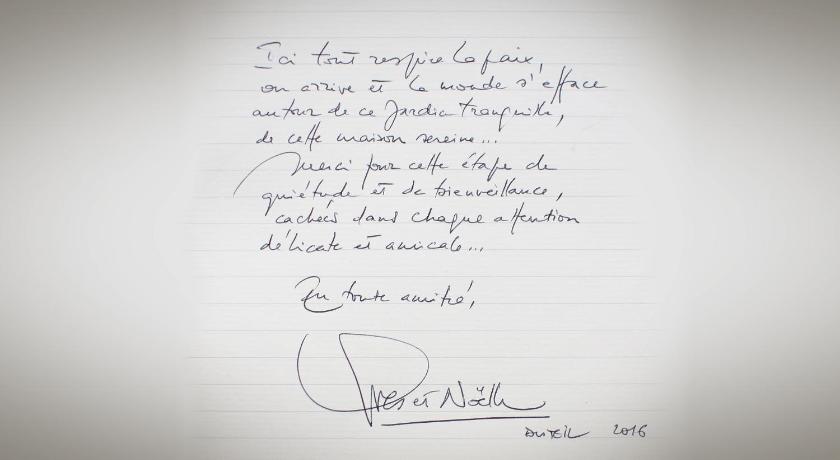 Ici tout respire la paix,
on arrive et le monde s'efface
autour de ce jardin tranquille,
de cette maison sereine...
Merci pour cette étape de
quiétude et de bienveillance,
cachées dans chaque attention
délicate et amicale...
En toute amitié,
Yves et Noëlle
DUTEIL 2016